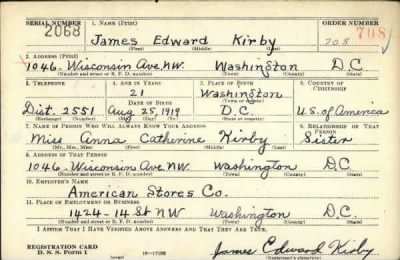 SERIAL NUMBER 1. NAME (Print) ORDER NUMBER
2068 James Edward Kirby 708 708
(First) (Middle) (Last)
2. ADDRESS (Print)
1046- Wisconsin Ave. N.W. Washington D.C.
(Number and street or R. F. D. number) (Town) (County) (State)
3. TELEPHONE 4. AGE IN YEARS 5. PLACE OF BIRTH 6. COUNTRY OF CITIZENSHIP
21 Washington
DATE OF BIRTH (Town or county)
Dist. 2551 Aug 25, 1919 D.C. U.S. of America
(Exchange) (Number) (Mo.) (Day) (Yr.) (State or country)
7. NAME OF PERSON WHO WILL ALWAYS KNOW YOUR ADDRESS 8. RELATIONSHIP OF THAT PERSON
Miss Anna Catherine Kirby Sister
(Mr., Mrs., Miss) (First) (Middle) (Last)
9. ADDRESS OF THAT PERSON
1046- Wisconsin Ave. N.W. Washington D.C.
(Number and street or R. F. D. number) (Town) (County) (State)
10. EMPLOYER'S NAME
American Stores Co.
11. PLACE OF EMPLOYMENT OR BUSINESS
1424-14 St NW Washington D.C.
(Number and street or R. F. D. number) (Town) (County) (State)
I AFFIRM THAT I HAVE VERIFIED ABOVE ANSWERS AND THAT THEY ARE TRUE.
REGISTRATION CARD
D. S. S. Form 1 James Edward Kirby